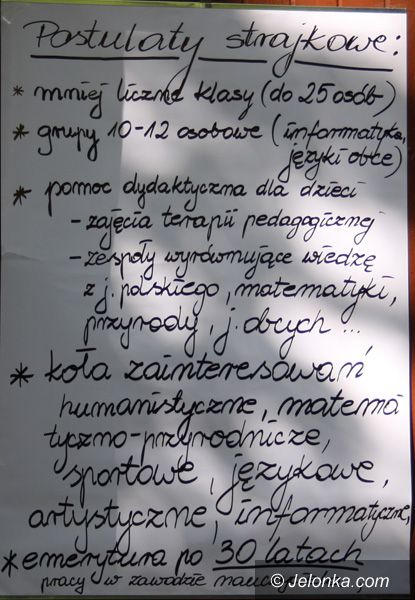 Postulaty strajkowe:
* mniej liczne klasy (do 25 osób)
* grupy 10-12 osobowe (informatyka,
języki obce)
* pomoc dydaktyczna dla dzieci
- zajęcia terapii pedagogicznej
- zespoły wyrównujące wiedzę
z j. polskiego, matematyki,
przyrody, j. obcych ...
* koła zainteresowań
humanistyczne, matema
tyczno-przyrodnicze,
sportowe, językowe,
artystyczne, informatyczne,
* emerytura po 30 latach
pracy w zawodzie
© Jelonka.com